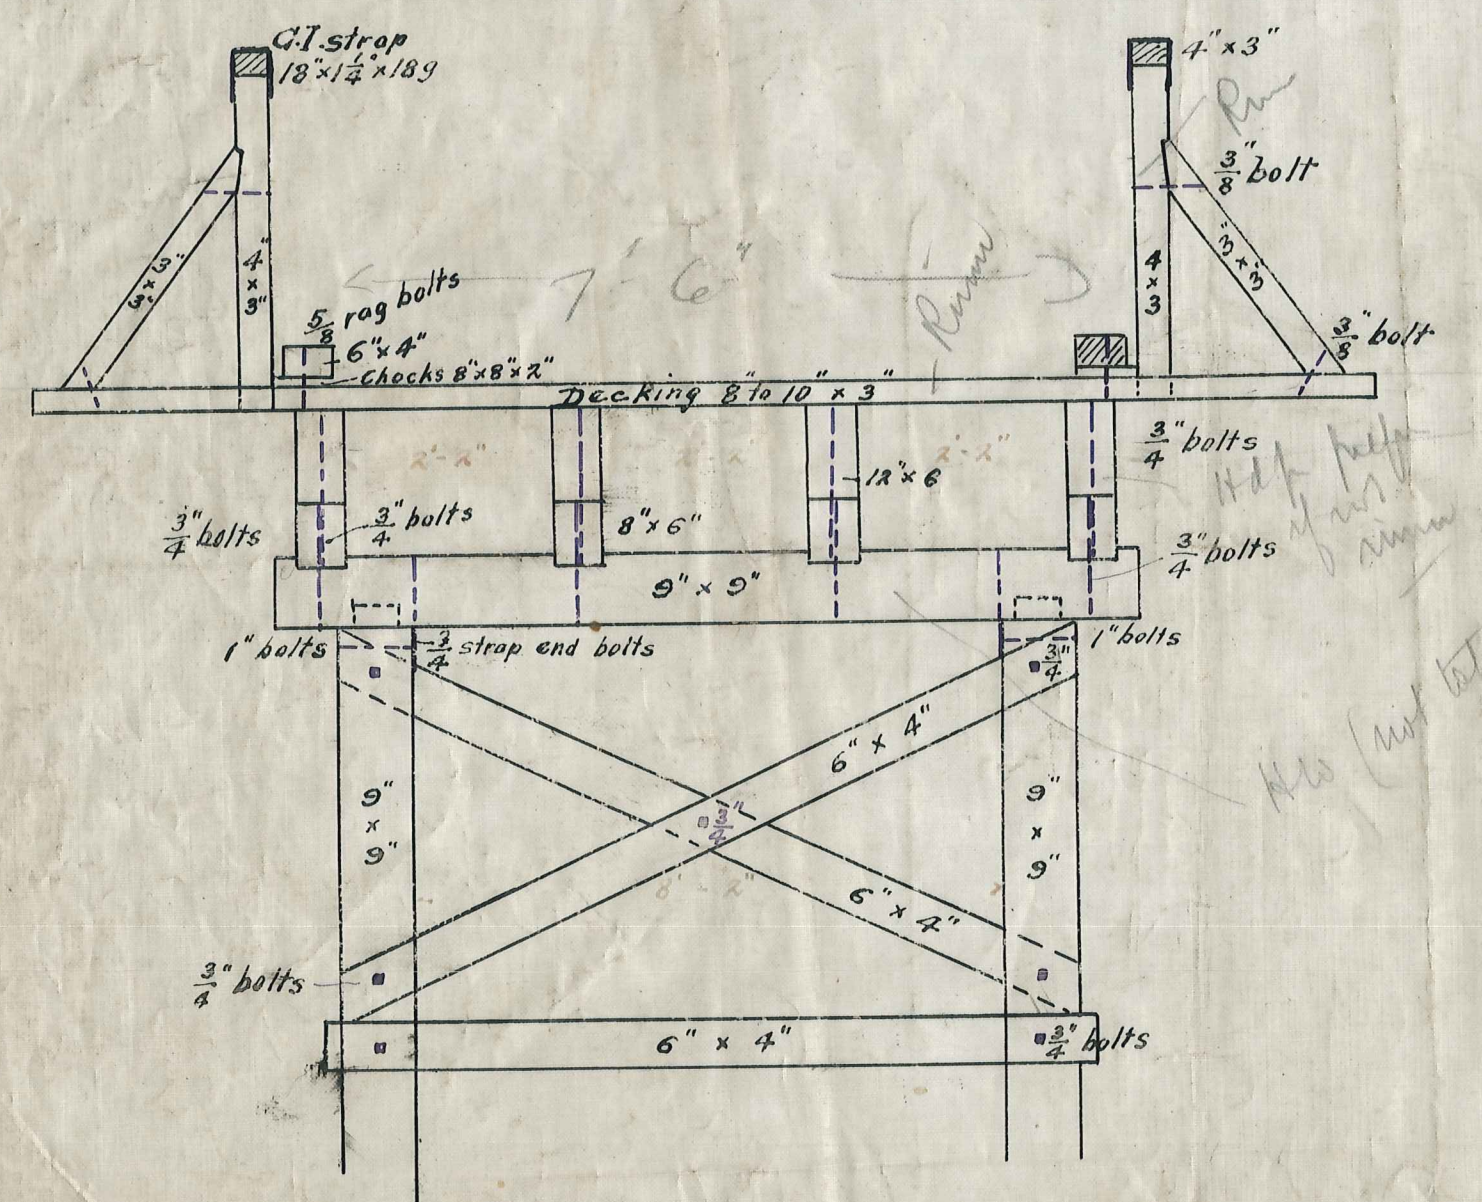 G.I. strap
18"x1¼"x18g
4" x 3"
Rimu
3/8" bolt
3" x 3"
4" x 3"
4 x 3
3" x 3"
7' 6"
Rimu
5/8 rag bolts
6" x 4"
chocks 8"x8"x2"
3/8" bolt
Decking 8" to 10" x 3"
2'-2"
2'-2
2'-2"
3/4" bolts
12" x 6
3/4" bolts
3/4" bolts
8" x 6"
3/4" bolts
9" x 9"
1" bolts
3/4 strap end bolts
1" bolts
3/4"
6" x 4"
9" x 9"
3/4"
9" x 9"
8'-2"
6" x 4"
3/4" bolts
6" x 4"
3/4" bolts